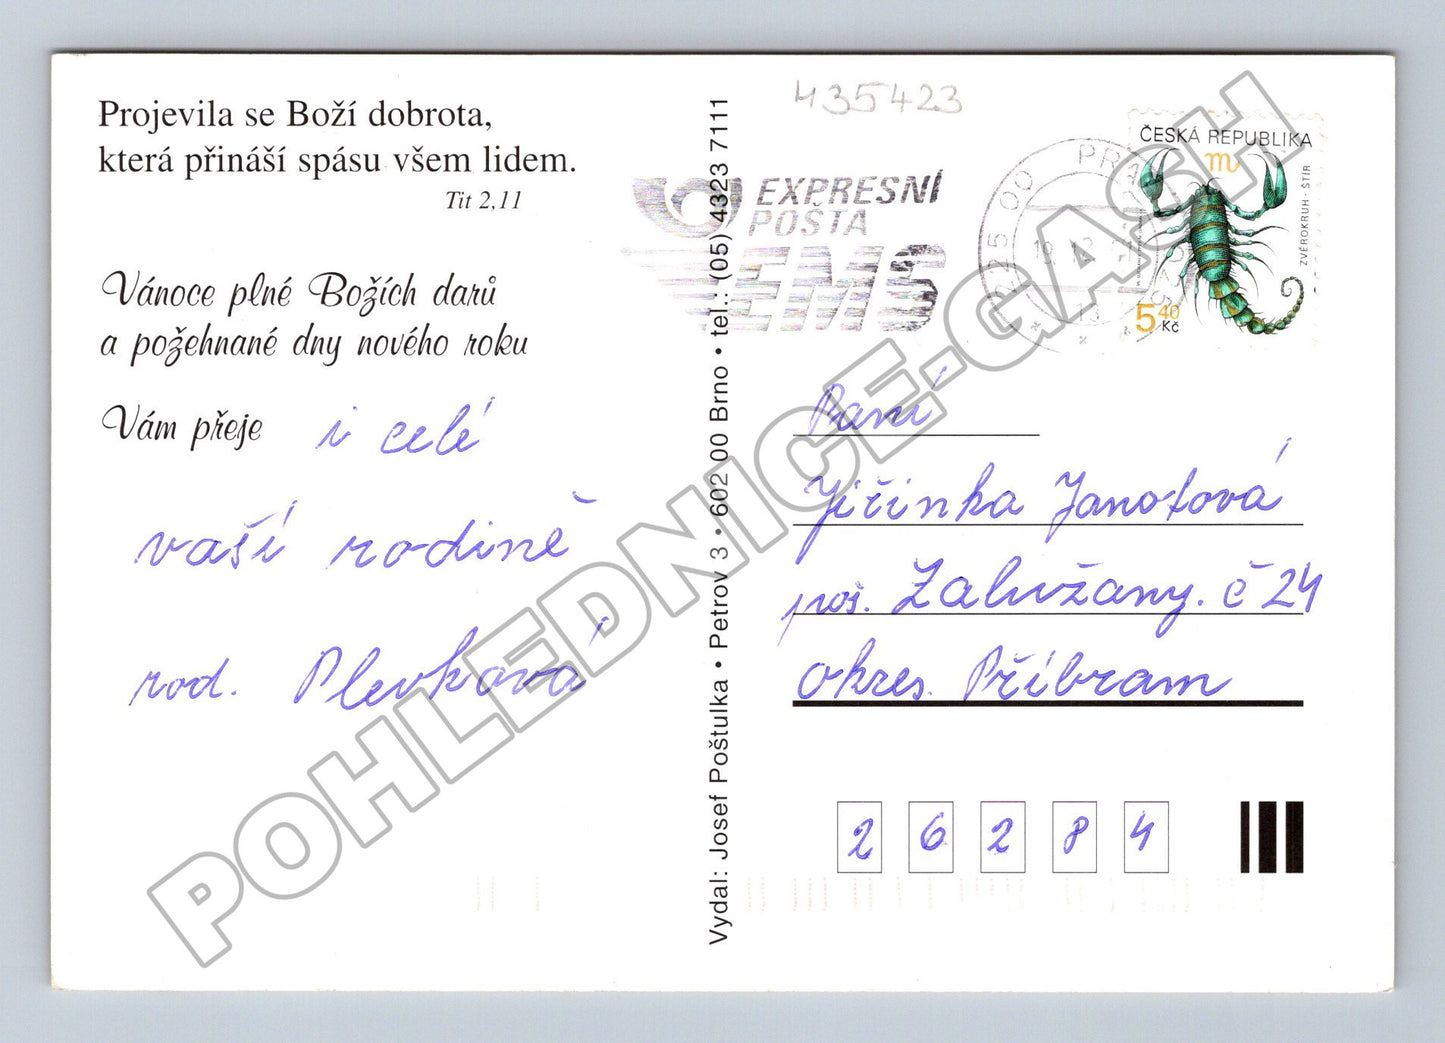 Projevila se Boží dobrota,
která přináší spásu všem lidem.
Tit 2,11
Vánoce plné Božích darů
a požehnané dny nového roku
Vám přeje i celé
vaší rodině
rod. Plevkova
Vydal: Josef Poštulka • Petrov 3 • 602 00 Brno • tel.: (05) 4323 7111
435423
EXPRESNÍ
POŠTA
EMS
225 00
19.12.
13
ČESKÁ REPUBLIKA
ZVĚROKRUH - ŠTÍR
5 40
Kč
Paní
Jiřinka Janotová
poš. Zalužany. č 24
okres. Příbram
2 6 2 8 4
POHLEDNICE-GASH